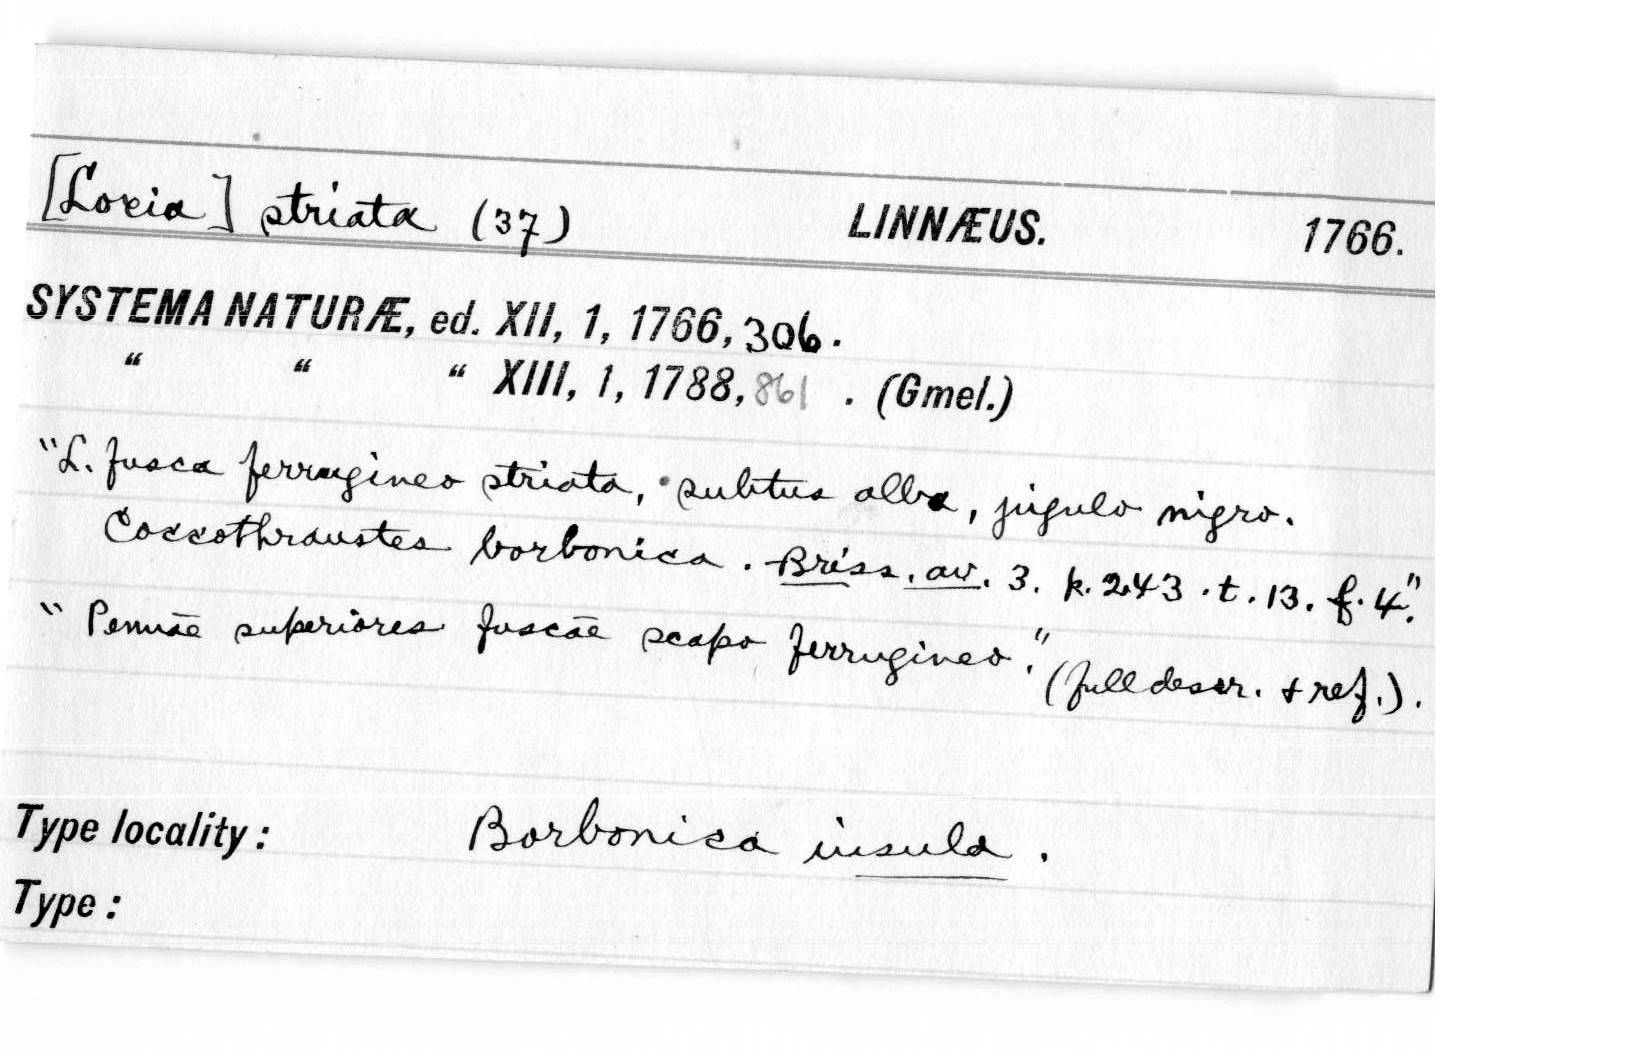 [Loxia] striata (37) LINNÆUS. 1766.
SYSTEMA NATURÆ, ed. XII, 1, 1766, 306.
“ “ “ XIII, 1, 1788, 861 . (Gmel.)
"L. fusca ferrugineo striata, subtus alba, jugulo nigro.
Coccothraustes borbonica. Briss. av. 3. p. 243. t. 13. f. 4."
"Pennae superiores fuscae scapo ferrugineo."
(full descr. + ref.).
Type locality: Borbonica insula.
Type: